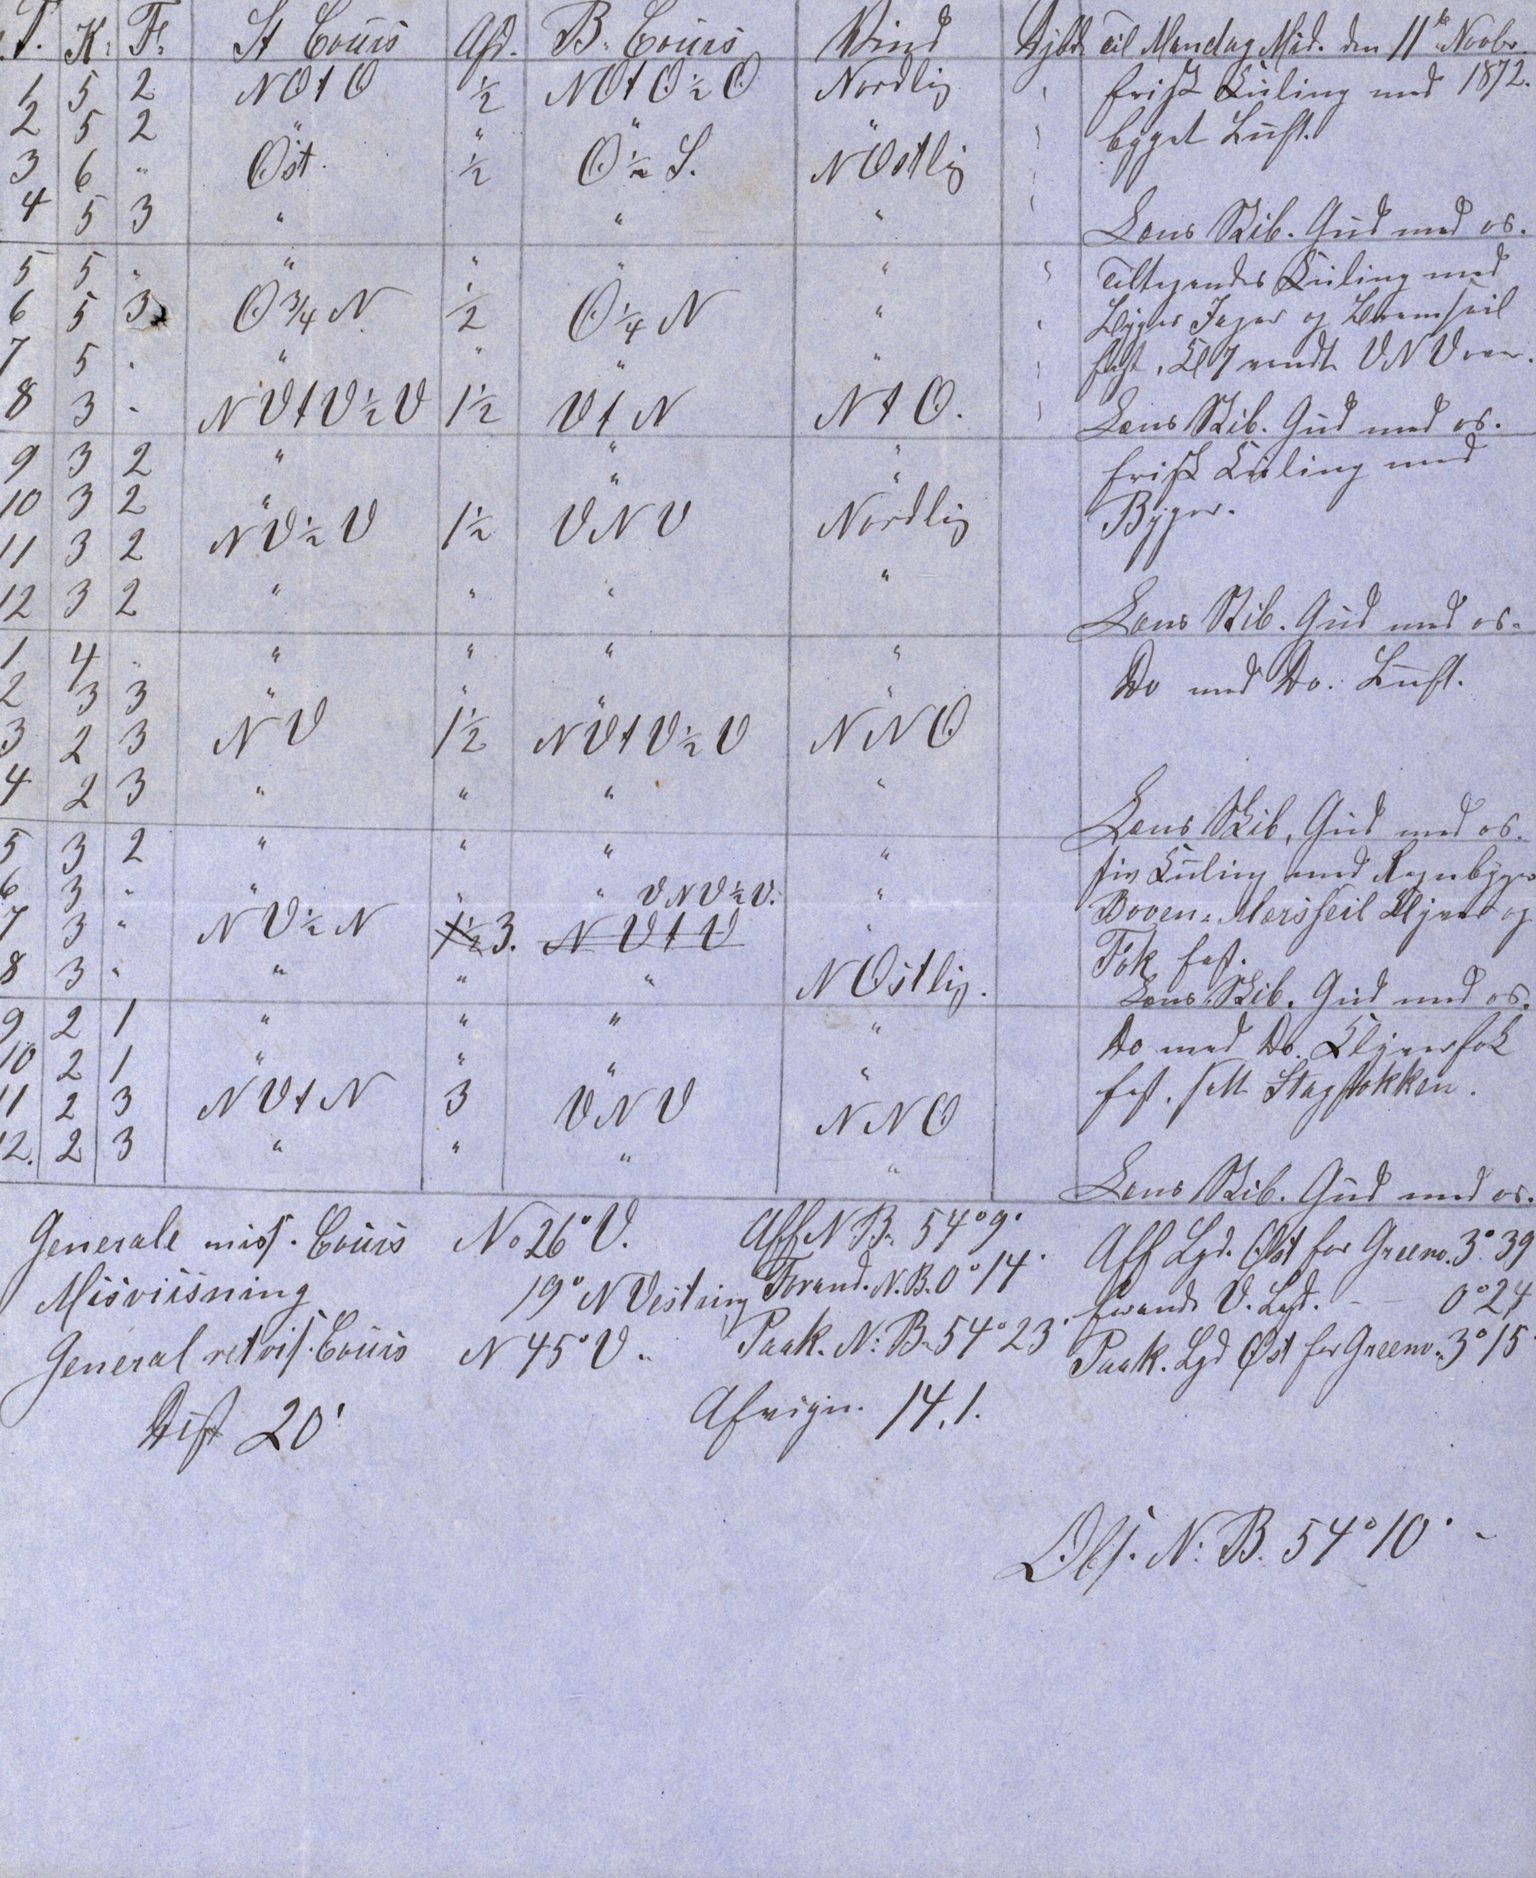 T. K: F: St Cours Afd. B. Cours Vind Dybd. Til Mandag Mid. den 11te Novbr. 1872.
1 5 2 NOtO ½ NOtO½O Nordlig frisk Kuling med
2 5 2 " " " " bygget Luft.
3 6 " Øst. ½ O½S. NOstlig
4 5 3 " " " Læns Skib. Gud med os.
5 5 " " " " " Tiltagende Kuling med
6 5 3 O¾N ½ O¼N " Byger Jager og Bramseil
7 5 " " " " " fast, Kl 7 vendt VNV over.
8 3 " NVtV½V 1½ VtN NtO. Læns Skib. Gud med os.
9 3 2 " " " frisk Kuling med
10 3 2 " " " Byger.
11 3 2 NV½V 1½ VNV Nordlig
12 3 2 " " " " Læns Skib. Gud med os.
1 4 " " " " "
2 3 3 " " " " Do med Do. Luft.
3 2 3 NV 1½ NVtV½V NNO
4 2 3 " " " " Læns Skib, Gud med os.
5 3 2 " " " " stiv Kuling med Regnbyger
6 3 " " " " " Boven-Mersseil Klyver og
7 3 " NV½N 1½ 3. NVtV VNV½V. " Fok fast.
8 3 " " " " NOstlig. Læns Skib. Gud med os.
9 2 1 " " " " Do med Do. Klyverfok
10 2 1 " " " " fast. satt Stagfokken.
11 2 3 NVtN 3 VNV NNO
12. 2 3 " " " " Læns Skib. Gud med os.
Generale misv. Cours N 26° V. Aff N B. 54°9' Aff Lgd. Øst for Greenw. 3° 39
Misviisning 19° NVestring Forand. N.B. 0°14' forand. V. Lgd. - - 0°24
General retvis. Cours N 45° V. Paak. N: B. 54°23' Paak. Lgd Øst for Greenw. 3°15'
Dist 20' Afvign. 14,1.
Obs. N: B. 54°10'